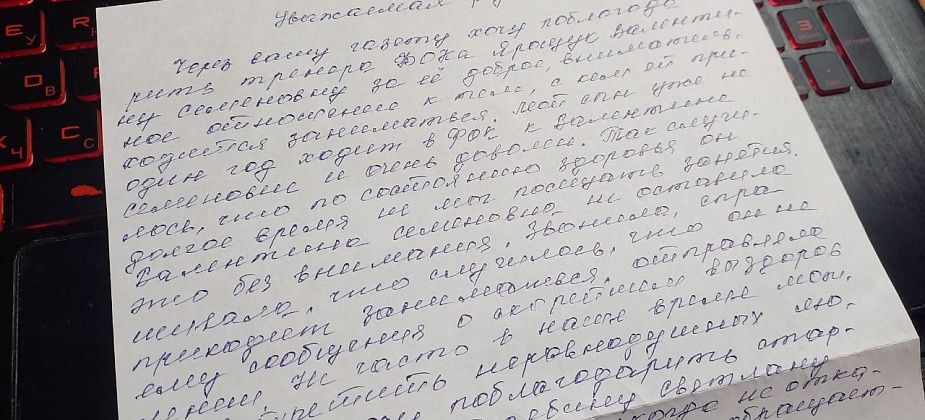 Уважаемая
Через вашу газету хочу поблагода
рить тренера ФОКа Ярощук Валенти-
ну Семеновну за её доброе, вниматель-
ное отношение к тем, с кем ей при-
ходится заниматься. Мой сын уже не
один год ходит в ФОК к Валентине
Семеновне и очень доволен. Так случи-
лось, что по состоянию здоровья он
долгое время не мог посещать занятия.
Валентина Семеновна не оставила
это без внимания. Звонила, спра
шивала, что случилось, что он не
приходит заниматься, отправляла
ему сообщения о скорейшем выздоров
лении. Не часто в наше время мож.
неравнодушных лю-
поблагодарить стар-
Светлану
не отка-